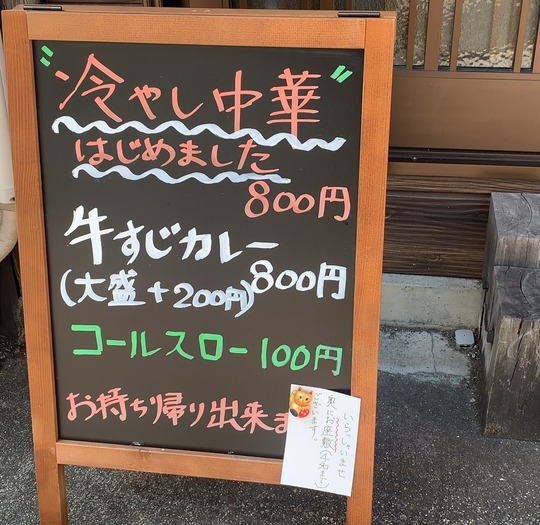 〝冷やし中華〟
はじめました
800円
牛すじカレー
800円
(大盛+200円)
コールスロー 100円
お持ち帰り出来ま
いらっしゃいませ
奥にお座敷(4名まで)
ございます。